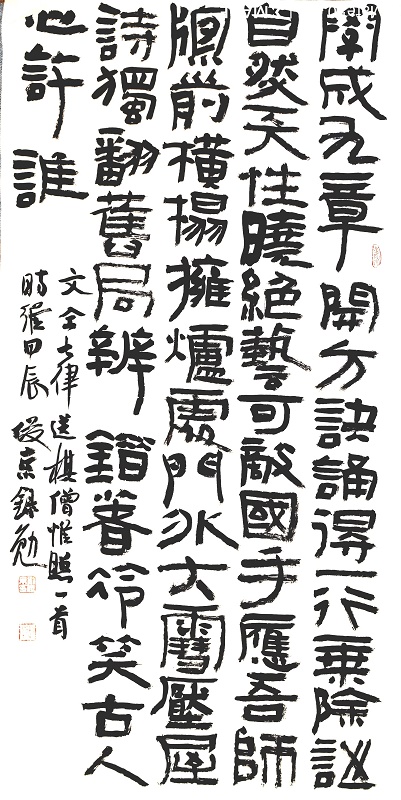 學成九章開方訣誦得一行乘除詩
自然天性曉絕藝可敵國手應吾師
窓前橫榻擁爐處門外大雪壓屋
詩獨翻舊局辨錯著冷笑古人
心許誰
文仝七律送棋僧惟照一首
時維甲辰